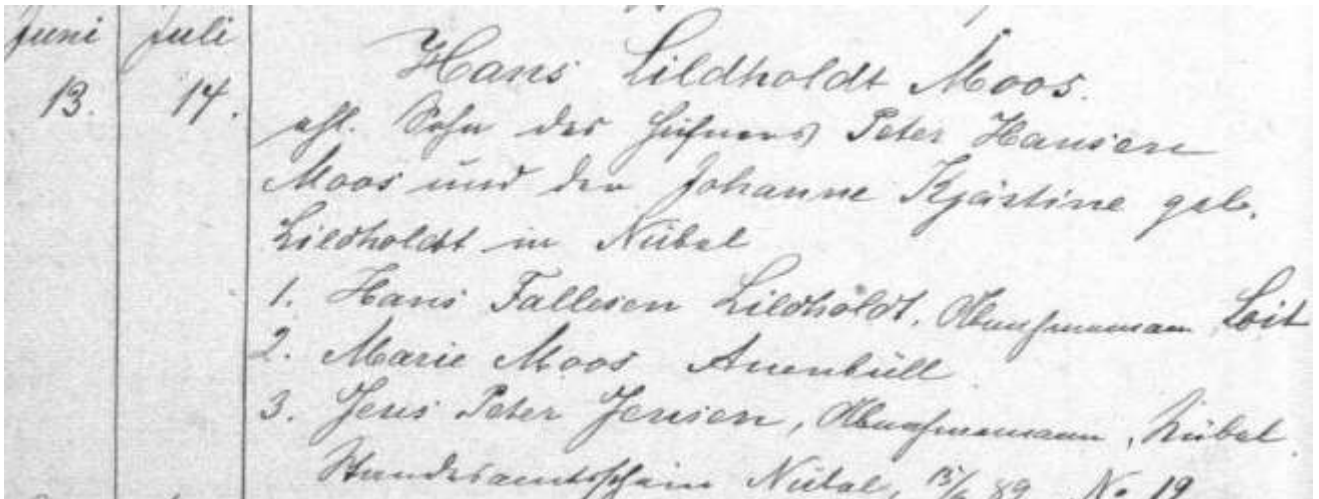 Juni Juli
13. 14.
Hans Lildholdt Moos.
ehl. Sohn des Hufners Peter Hansen
Moos und der Johanne Kjästine geb.
Lildholdt in Nübel
1. Hans Fallesen Lildholdt, Abnahmemann Loit
2. Marie Moos Auenbüll
3. Jens Peter Jensen, Abnahmemann, Nübel.
Standesamtsschein Nübel, 15/6 89 No 19